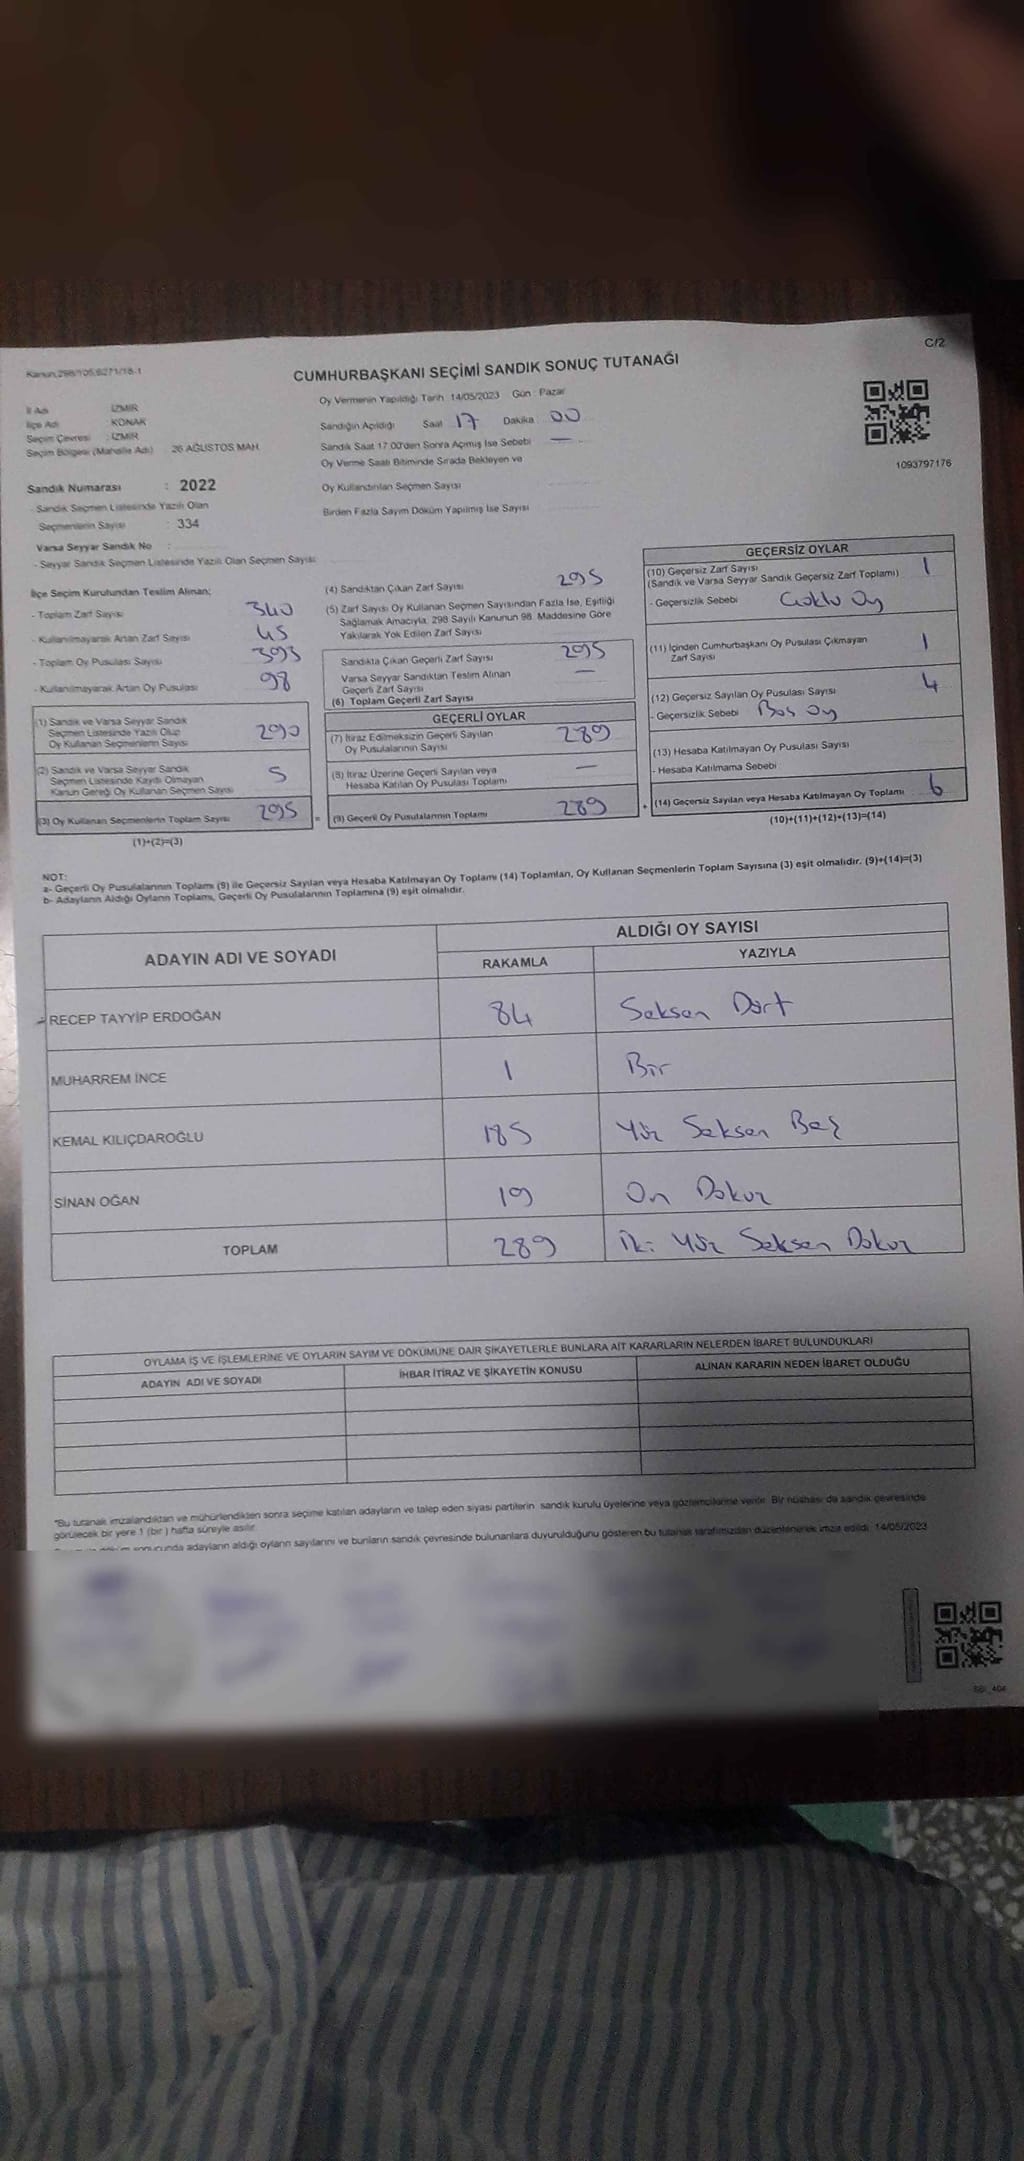 Kanun:298/105,6271/18-1
C/2
CUMHURBAŞKANI SEÇİMİ SANDIK SONUÇ TUTANAĞI
İl Adı : İZMİR
İlçe Adı : KONAK
Seçim Çevresi : İZMİR
Seçim Bölgesi (Mahalle Adı) 26 AĞUSTOS MAH.
Sandık Numarası : 2022
- Sandık Seçmen Listesinde Yazılı Olan
Seçmenlerin Sayısı : 334
Varsa Seyyar Sandık No :
- Seyyar Sandık Seçmen Listesinde Yazılı Olan Seçmen Sayısı:
Oy Vermenin Yapıldığı Tarih: 14/05/2023 Gün : Pazar
Sandığın Açıldığı Saat 17 Dakika 00
Sandık Saat 17:00'den Sonra Açmış İse Sebebi —
Oy Verme Saati Bitiminde Sırada Bekleyen ve
Oy Kullandırılan Seçmen Sayısı
Birden Fazla Sayım Döküm Yapılmış İse Sayısı
1093797176
İlçe Seçim Kurulundan Teslim Alınan;
- Toplam Zarf Sayısı 340
- Kullanılmayarak Artan Zarf Sayısı 45
- Toplam Oy Pusulası Sayısı 393
- Kullanılmayarak Artan Oy Pusulası 98
(1) Sandık ve Varsa Seyyar Sandık
Seçmen Listesinde Yazılı Olup
Oy Kullanan Seçmenlerin Sayısı 290
(2) Sandık ve Varsa Seyyar Sandık
Seçmen Listesinde Kayıtlı Olmayan
Kanun Gereği Oy Kullanan Seçmen Sayısı 5
(3) Oy Kullanan Seçmenlerin Toplam Sayısı 295
(1)+(2)=(3)
(4) Sandıktan Çıkan Zarf Sayısı 295
(5) Zarf Sayısı Oy Kullanan Seçmen Sayısından Fazla İse, Eşitliği
Sağlamak Amacıyla, 298 Sayılı Kanunun 98. Maddesine Göre
Yakılarak Yok Edilen Zarf Sayısı
Sandıkta Çıkan Geçerli Zarf Sayısı 295
Varsa Seyyar Sandıktan Teslim Alınan
Geçerli Zarf Sayısı —
(6) Toplam Geçerli Zarf Sayısı
GEÇERLİ OYLAR
(7) İtiraz Edilmeksizin Geçerli Sayılan
Oy Pusulalarının Sayısı 289
(8) İtiraz Üzerine Geçerli Sayılan veya
Hesaba Katılan Oy Pusulası Toplamı —
= (9) Geçerli Oy Pusulalarının Toplamı 289
GEÇERSİZ OYLAR
(10) Geçersiz Zarf Sayısı
(Sandık ve Varsa Seyyar Sandık Geçersiz Zarf Toplamı) 1
- Geçersizlik Sebebi Çoklu Oy
(11) İçinden Cumhurbaşkanı Oy Pusulası Çıkmayan
Zarf Sayısı 1
(12) Geçersiz Sayılan Oy Pusulası Sayısı 4
- Geçersizlik Sebebi Boş Oy
(13) Hesaba Katılmayan Oy Pusulası Sayısı
- Hesaba Katılmama Sebebi
+ (14) Geçersiz Sayılan veya Hesaba Katılmayan Oy Toplamı 6
(10)+(11)+(12)+(13)=(14)
NOT:
a- Geçerli Oy Pusulalarının Toplamı (9) ile Geçersiz Sayılan veya Hesaba Katılmayan Oy Toplamı (14) Toplamları, Oy Kullanan Seçmenlerin Toplam Sayısına (3) eşit olmalıdır. (9)+(14)=(3)
b- Adayların Aldığı Oyların Toplamı, Geçerli Oy Pusulalarının Toplamına (9) eşit olmalıdır.
ADAYIN ADI VE SOYADI
ALDIĞI OY SAYISI
RAKAMLA YAZIYLA
RECEP TAYYİP ERDOĞAN 84 Seksen Dört
MUHARREM İNCE 1 Bir
KEMAL KILIÇDAROĞLU 185 Yüz Seksen Beş
SİNAN OĞAN 19 On Dokuz
TOPLAM 289 İki Yüz Seksen Dokuz
OYLAMA İŞ VE İŞLEMLERİNE VE OYLARIN SAYIM VE DÖKÜMÜNE DAİR ŞİKAYETLERLE BUNLARA AİT KARARLARIN NELERDEN İBARET BULUNDUKLARI
ADAYIN ADI VE SOYADI İHBAR İTİRAZ VE ŞİKAYETİN KONUSU ALINAN KARARIN NEDEN İBARET OLDUĞU
*Bu tutanak imzalandıktan ve mühürlendikten sonra seçime katılan adayların ve talep eden siyasi partilerin sandık kurulu üyelerine veya gözlemcilerine verilir. Bir nüshası da sandık çevresinde
görülecek bir yere 1 (bir) hafta süreyle asılır.
sonucunda adayların aldığı oyların sayılarını ve bunların sandık çevresinde bulunanlara duyurulduğunu gösteren bu tutanak tarafımızdan düzenlenerek imza edildi. 14/05/2023